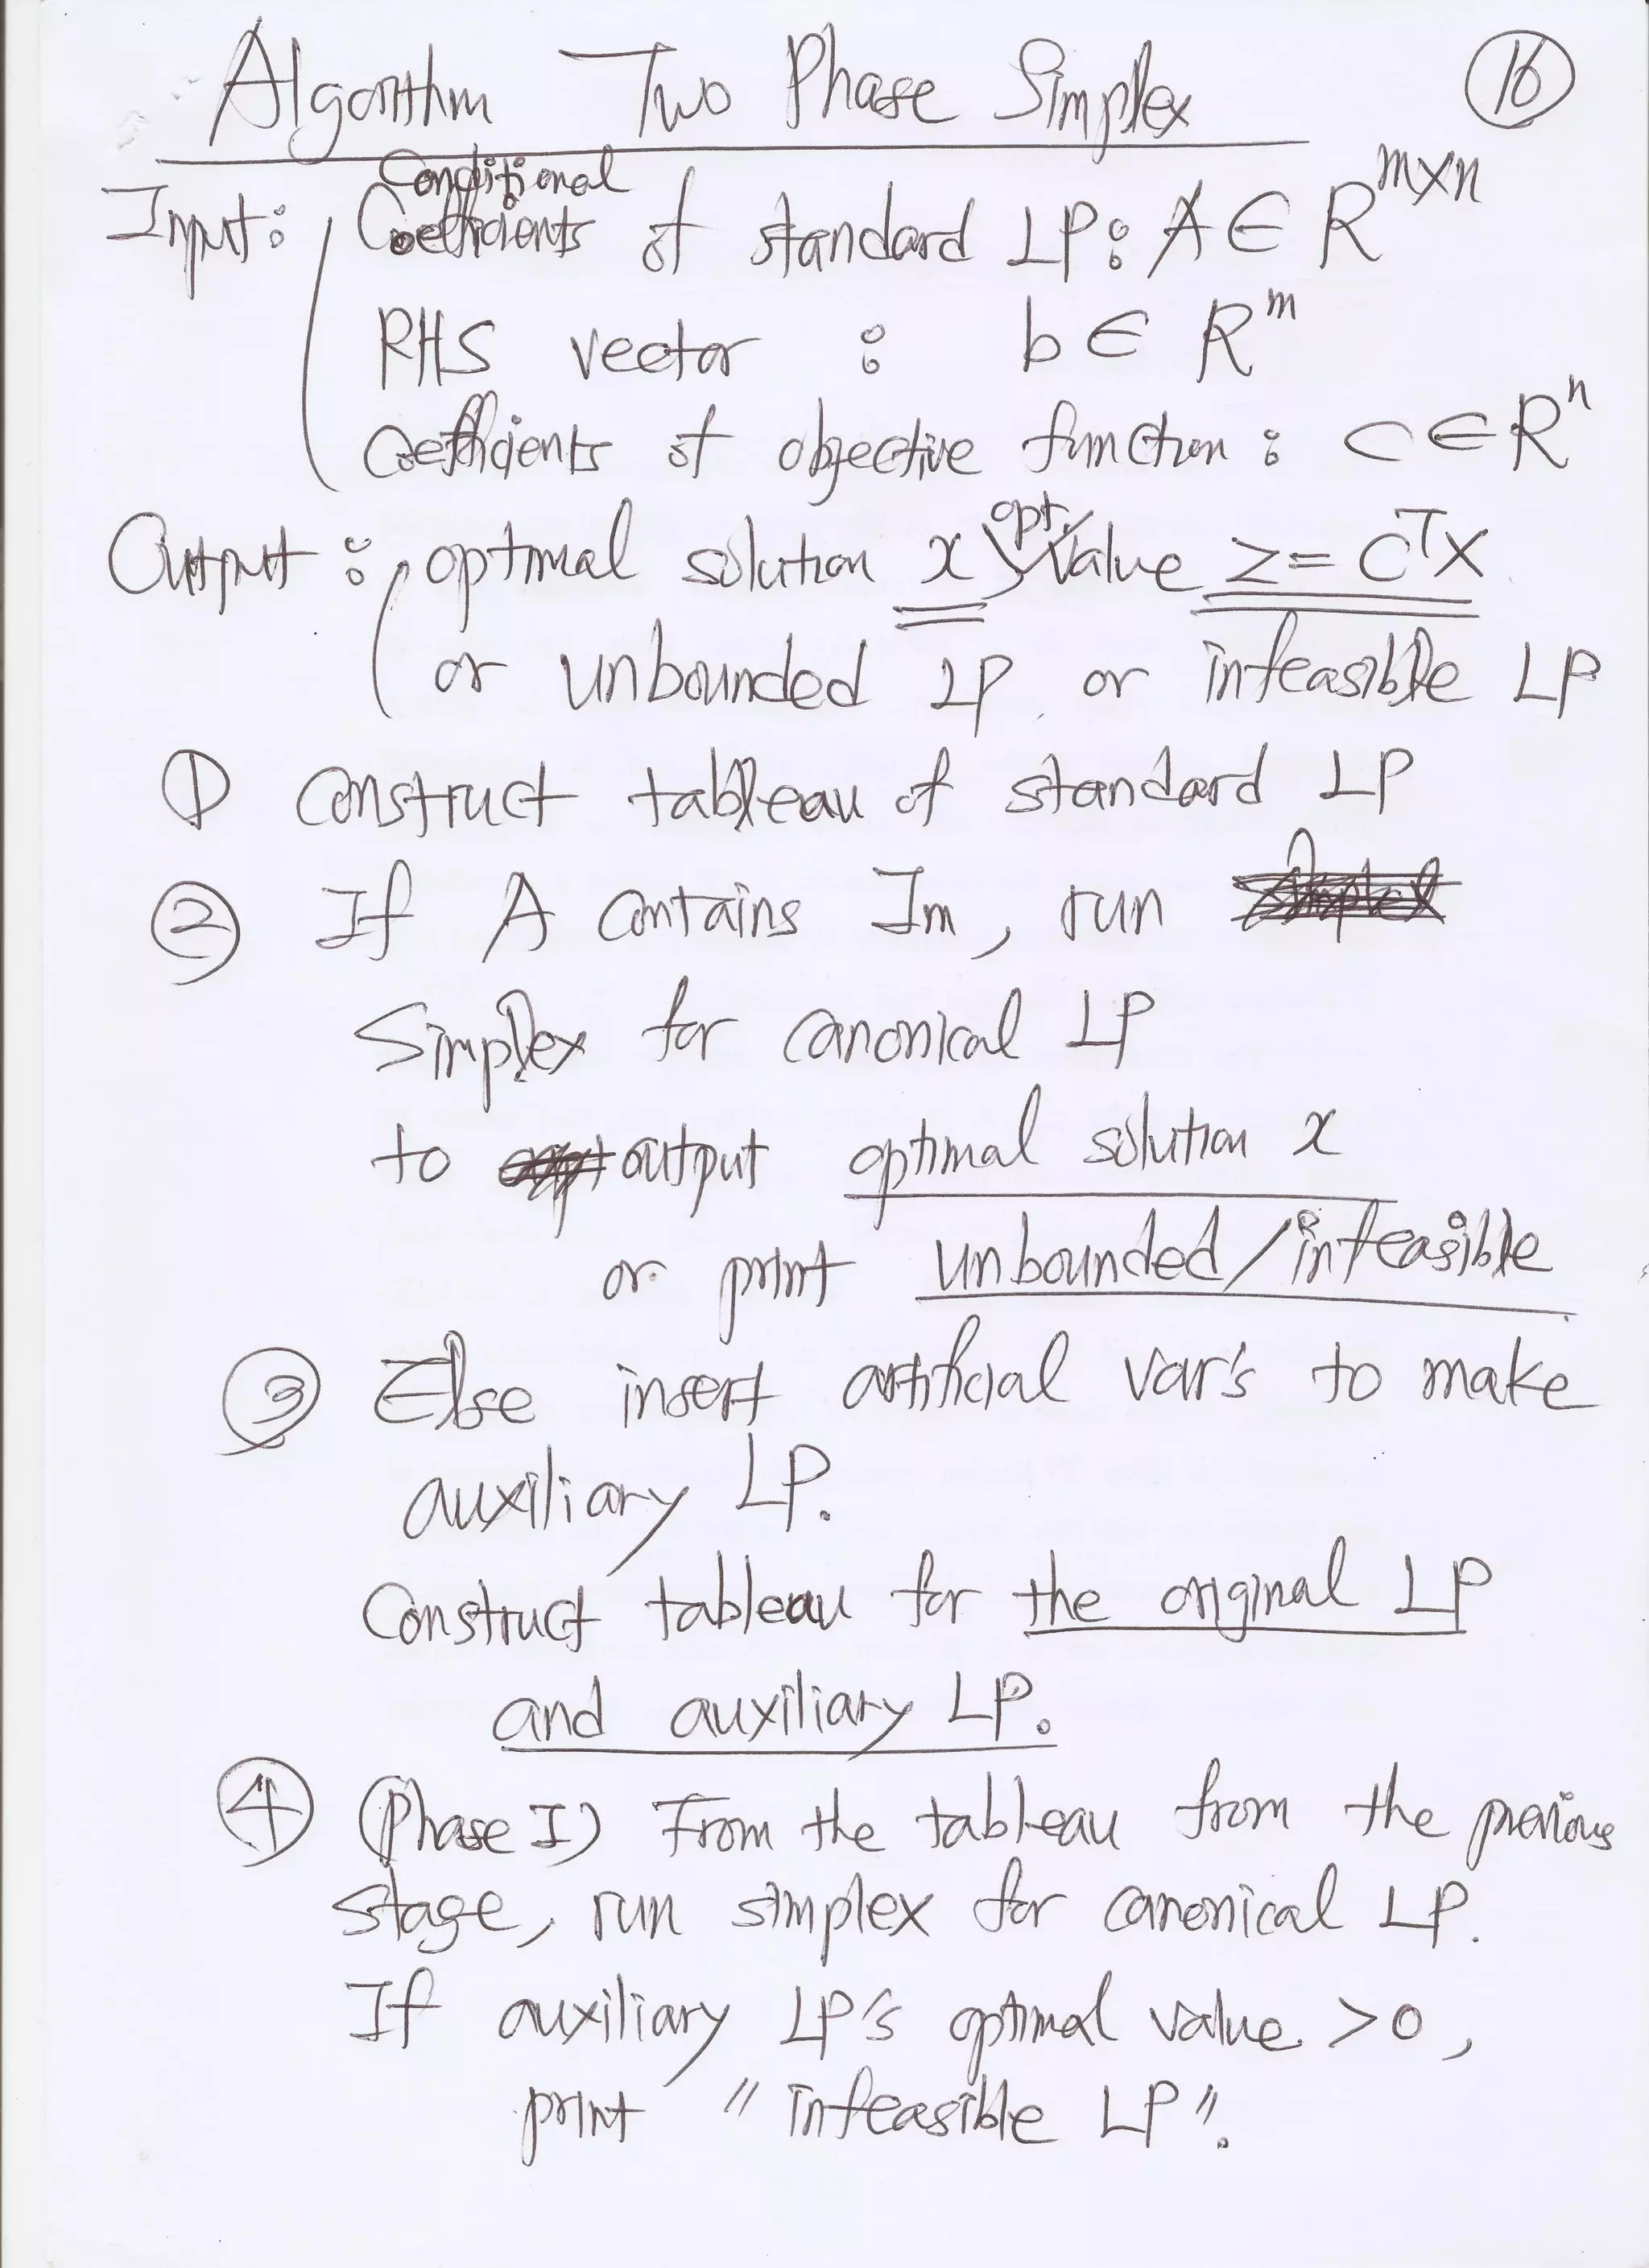 Algorithm Two Phase Simplex ⑯
Conditional
Input: Coefficients of standard LP: A ∈ R^{m×n}
RHS vector : b ∈ R^m
Coefficients of objective function : c ∈ R^n
Output : optimal solution x, opt. value z = c^T x
or unbounded LP or infeasible LP
① Construct tableau of standard LP
② If A contains Im, run
Simplex for canonical LP
to output optimal solution x
or print unbounded/infeasible
③ Else insert artificial var's to make
auxiliary LP.
Construct tableau for the original LP
and auxiliary LP.
④ (Phase I) From the tableau from the previous
stage, run simplex for canonical LP.
If auxiliary LP's optimal value > 0,
print "infeasible LP".